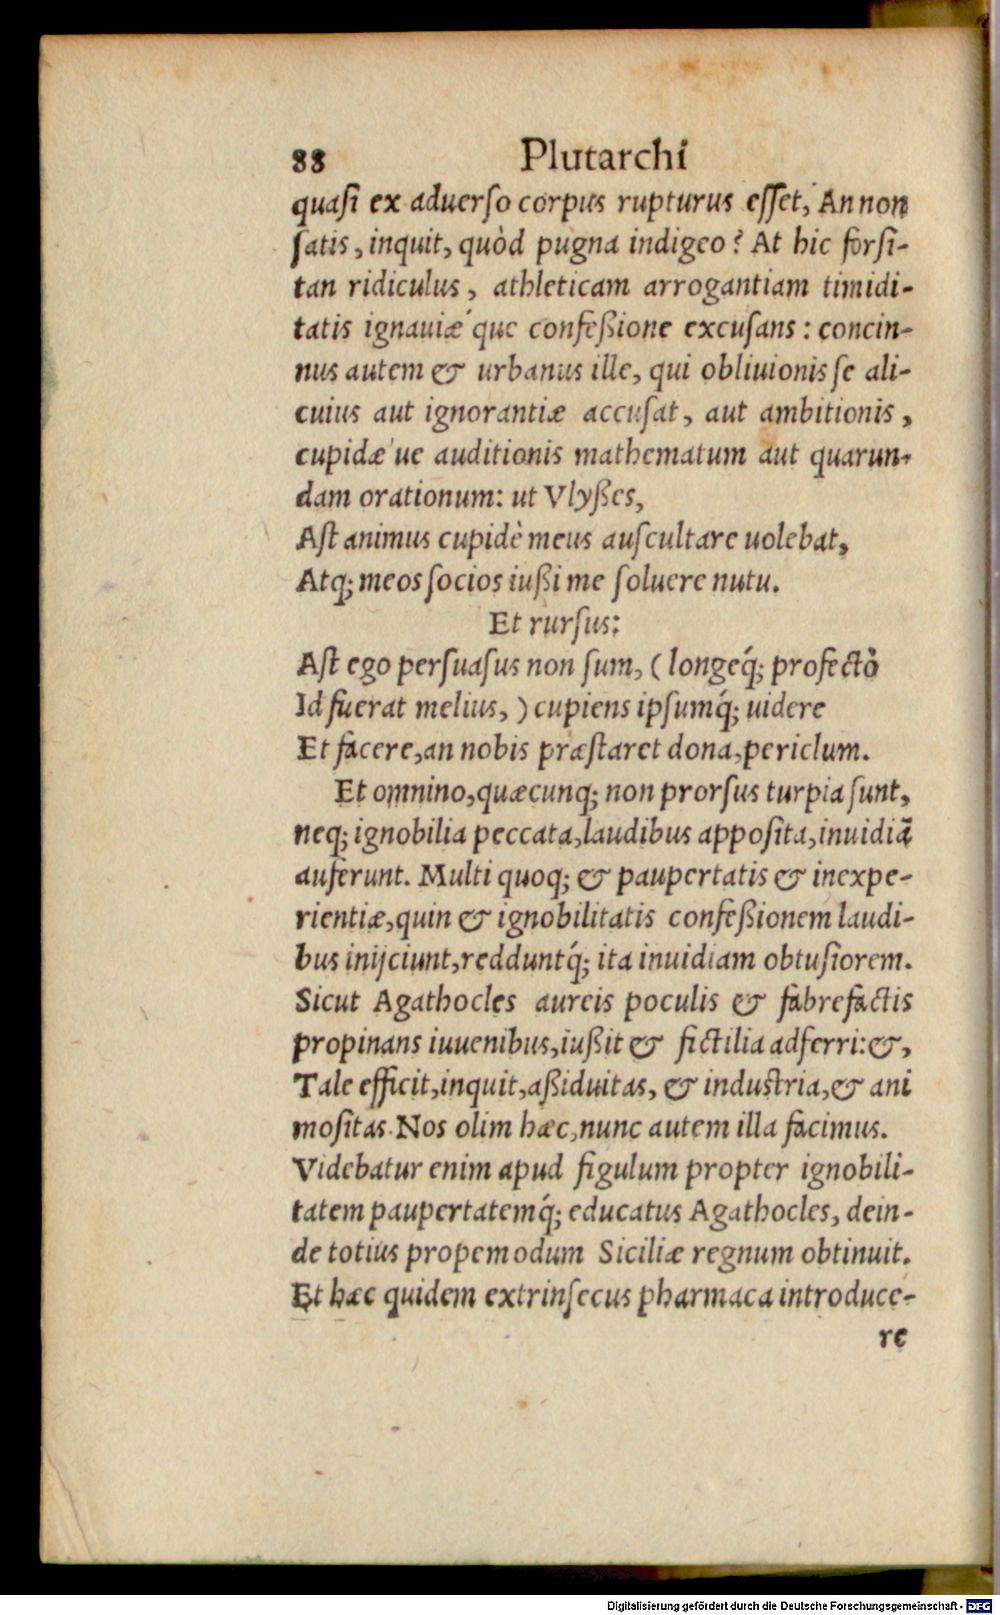 88 Plutarchi
quaſi ex aduerſo corpus rupturus eſſet, An non
ſatis, inquit, quòd pugna indigeo? At hic forſi-
tan ridiculus, athleticam arrogantiam timidi-
tatis ignauiæ´que confeßione excuſans: concin-
nus autem & urbanus ille, qui obliuionis ſe ali-
cuius aut ignorantiæ accuſat, aut ambitionis,
cupidæ´ue auditionis mathematum aut quarun-
dam orationum: ut Vlyßes,
Aſt animus cupidè meus auſcultare uolebat,
Atq; meos ſocios iußi me ſoluere nutu.
Et rurſus:
Aſt ego perſuaſus non ſum, (longeq́; profectò
Id fuerat melius,) cupiens ipſumq́; uidere
Et facere, an nobis præſtaret dona, periclum.
Et omnino, quæcunq; non prorſus turpia ſunt,
neq; ignobilia peccata, laudibus appoſita, inuidiã
auferunt. Multi quoq; & paupertatis & inexpe-
rientiæ, quin & ignobilitatis confeßionem laudi-
bus inijciunt, redduntq́; ita inuidiam obtuſiorem.
Sicut Agathocles aureis poculis & fabrefactis
propinans iuuenibus, iußit & fictilia adferri: &,
Tale efficit, inquit, aßiduitas, & induſtria, & ani
moſitas. Nos olim hæc, nunc autem illa facimus.
Videbatur enim apud figulum propter ignobili-
tatem paupertatemq́; educatus Agathocles, dein-
de totius propemodum Siciliæ regnum obtinuit.
Et hæc quidem extrinſecus pharmaca introduce-
re
Digitalisierung gefördert durch die Deutsche Forschungsgemeinschaft - DFG